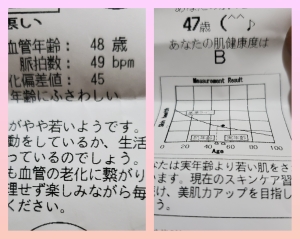 悪い
血管年齢: 48 歳
脈拍数: 49 bpm
化偏差値: 45
年齢にふさわしい
がやや若いようです。
動をしているか、生活
っているのでしょう。
も血管の老化に繋がり
理せず楽しみながら毎
ください。
あなたの
47歳 (^^♪
あなたの肌健康度は
B
Measurement Result
20 40 60 80 100
Age
たは実年齢より若い肌をさ
います。現在のスキンケア習
け、美肌力アップを目指し
う。